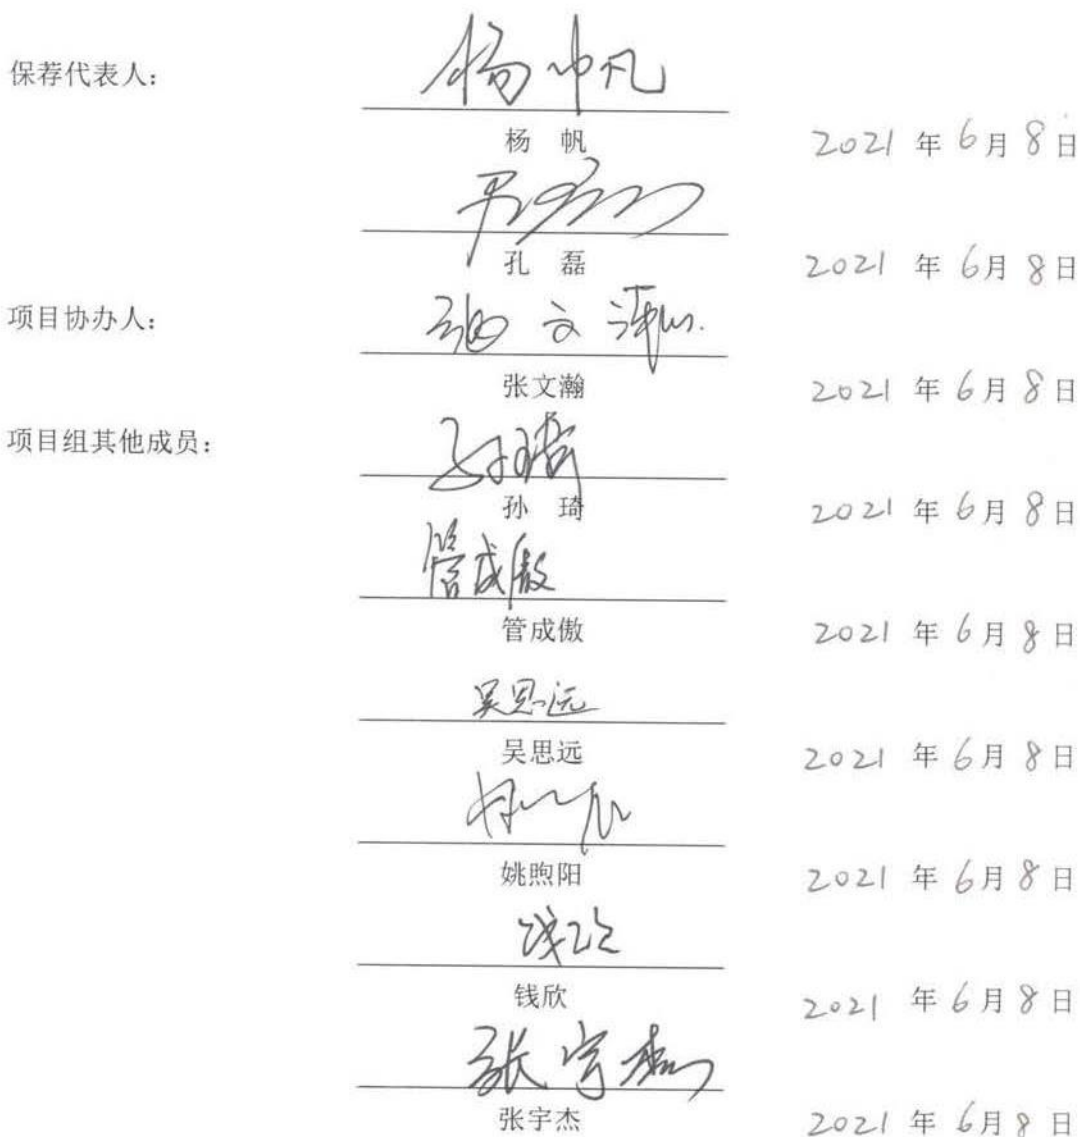 保荐代表人：
杨帆
杨 帆
2021 年 6 月 8 日
孔 磊
2021 年 6 月 8 日
项目协办人：
张文瀚
张文瀚
2021 年 6 月 8 日
项目组其他成员：
孙琦
孙 琦
2021 年 6 月 8 日
管成傲
管成傲
2021 年 6 月 8 日
吴思远
吴思远
2021 年 6 月 8 日
姚煦阳
2021 年 6 月 8 日
钱欣
2021 年 6 月 8 日
张宇杰
张宇杰
2021 年 6 月 8 日